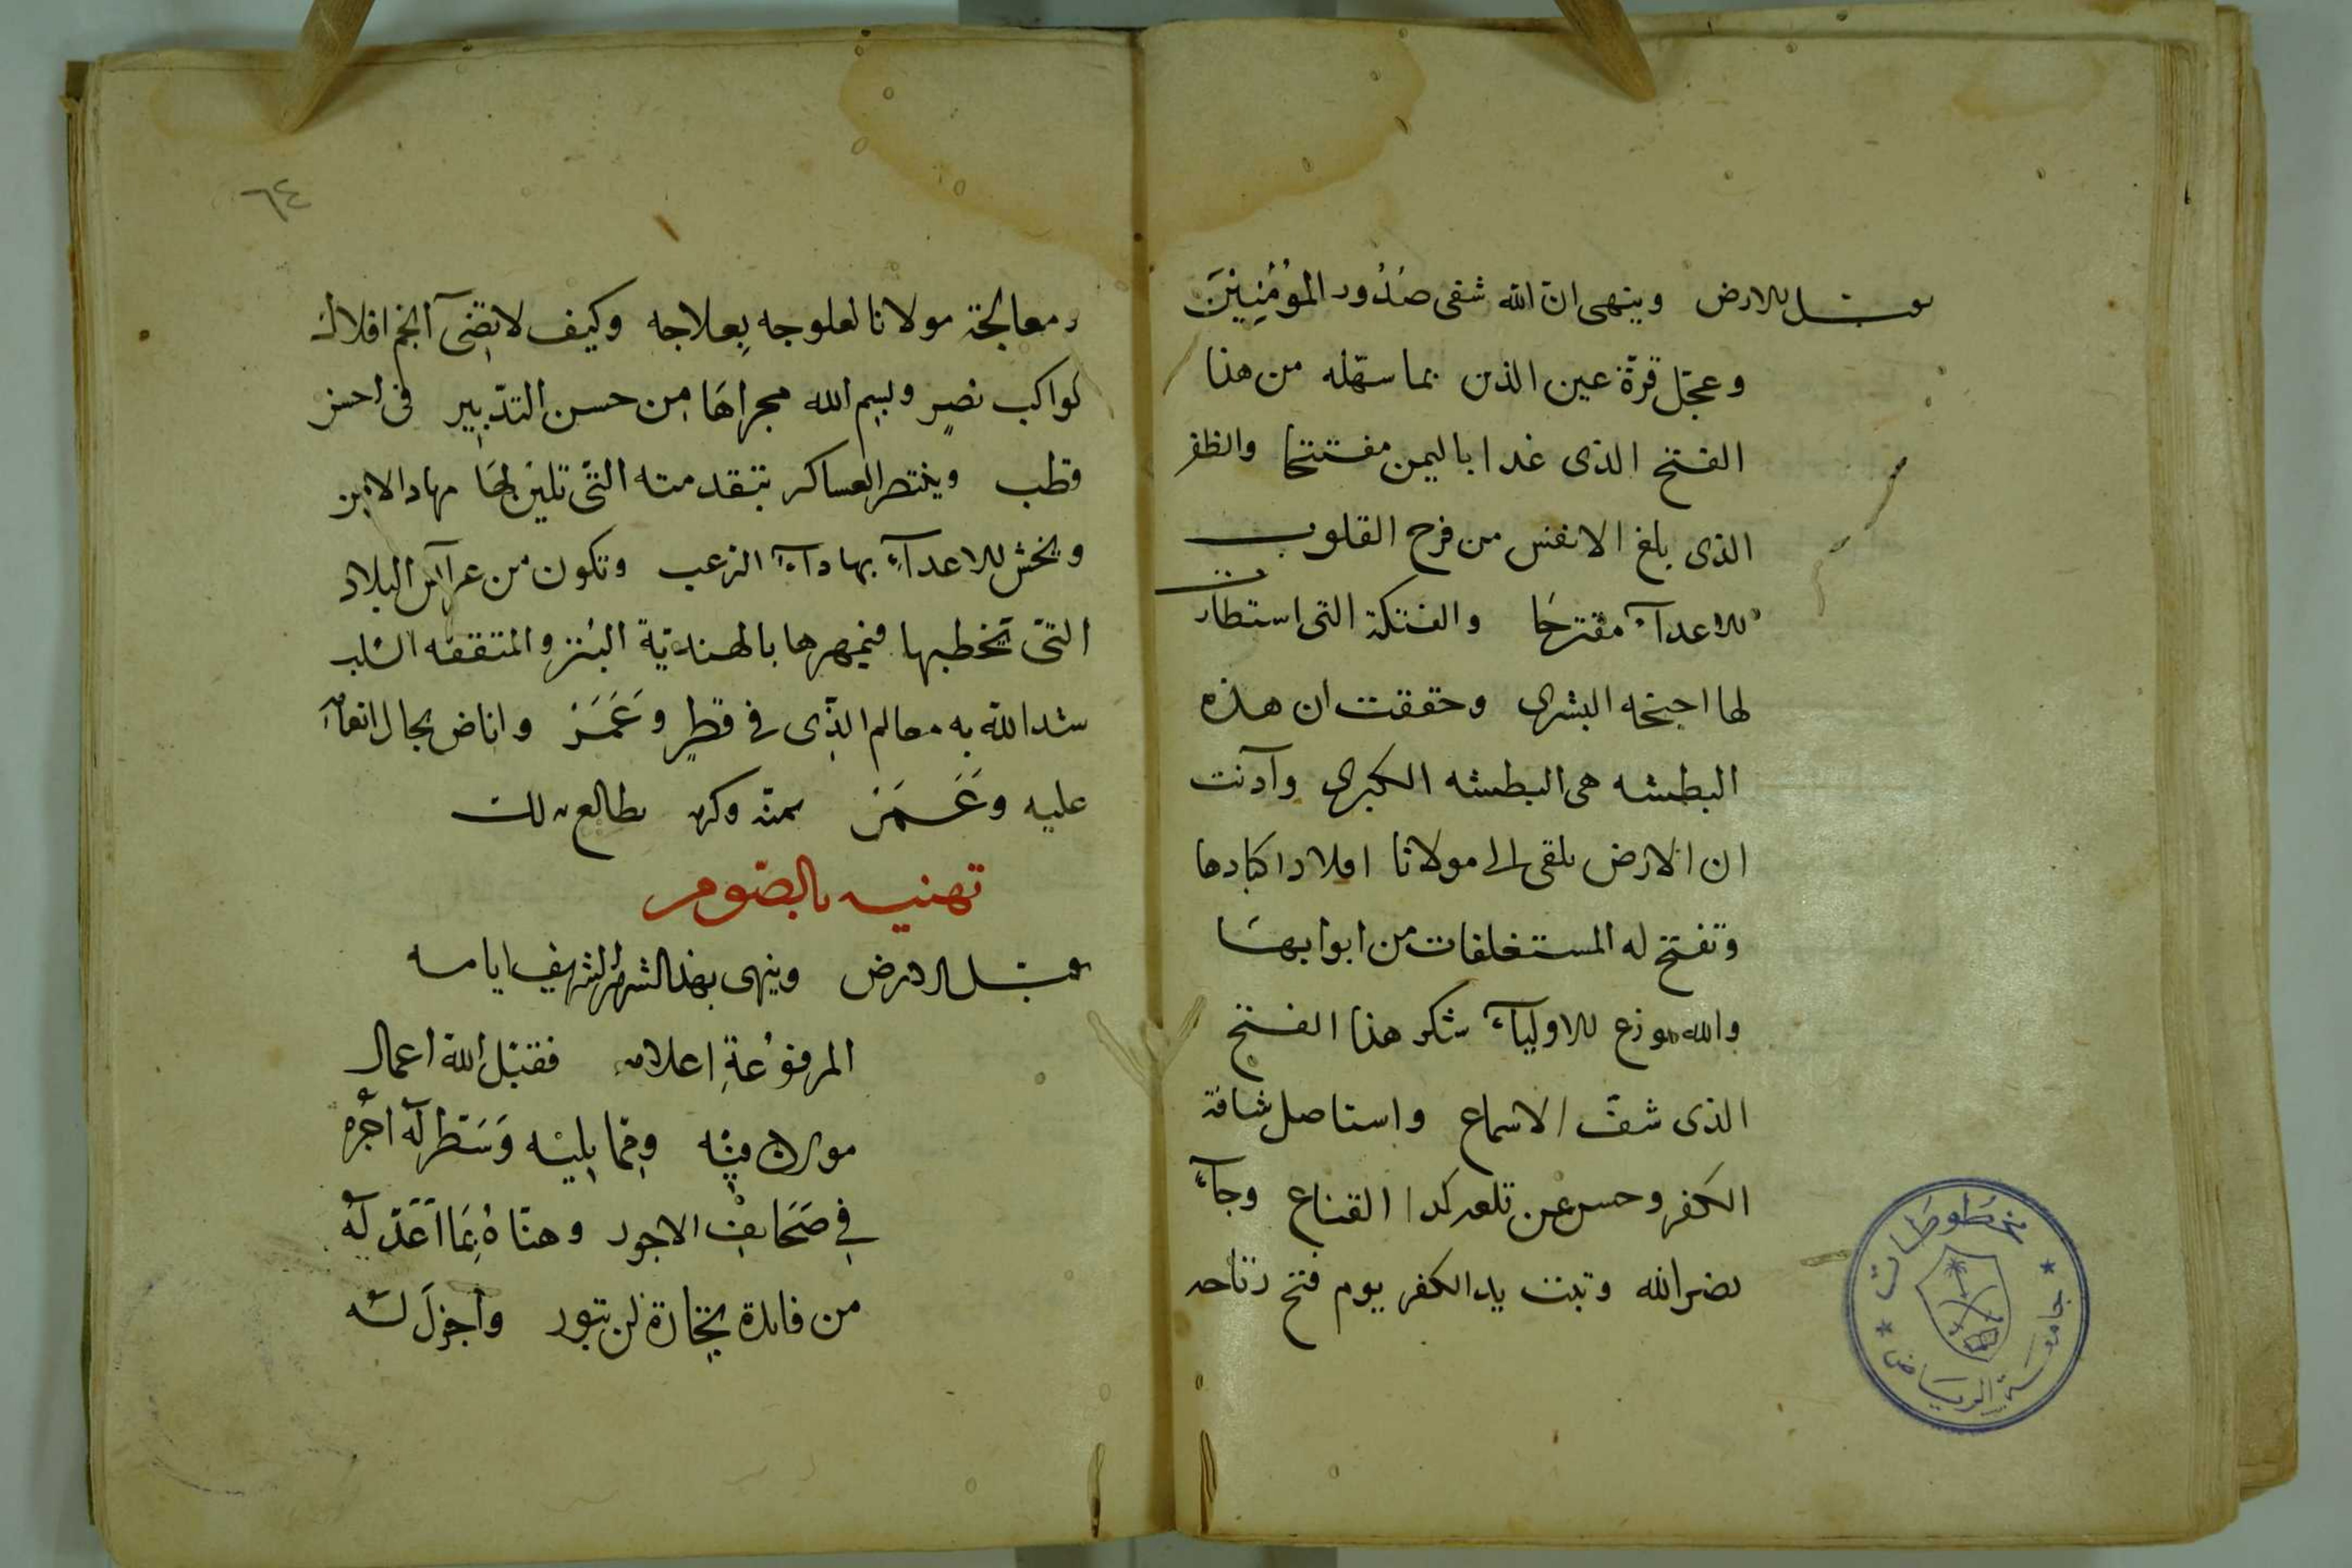 يقبل الارض وينهى ان الله شفى صُدُور المؤمِنِينَ
وعجّل قرّة عين الدين بما سهّله من هذا
الفتح الذى غدا باليمن مفتتحا والظفر
الذى بلغ الانفس من فرح القلوب
للاعدآء مقترحَا والفتكة التى استطارت
لها اجنحه البشرى وحققت ان هذه
البطشه هى البطشه الكبرى وآذنت
ان الارض تلقى الى مولانا افلاذ اكبادها
وتفتح له المستغلقات من ابوابهَا
والله موزع للاوليآء شكر هذا الفتح
الذى شنّف الاسماع واستاصل شافة
الكفر وحسر عن القناع وجآء
نصر الله وتبت يد الكفر يوم فتح
٦٤
ومعالجة مولانا لعلوجه بِعلاجه وكيف لا تضىء انجم افلاك
كواكب نصرٍ وبسِم الله مجراهَا مِن حسن التدّبِير فى احسن
قطب وينتصر العساكر بتقدمته التى تلين لهَا مهاد الامن
ويخش للاعدآءِ بها دآء الرعب وتكون من عرآئس البلاد
التى يَخطبها فيمهرها بالهنديّة البُتر والمثقفه السُلب
شد الله به معالم الدِّين فى قطرٍ وَعَمَرَ وافاض سجال انعامه
عليه وَغَمَرَ بمنّه وكرمه طالع بذلك
تهنيه بالصّوم
يقبل الارض وينهى بهذا الشهر الشريف ايامه
المرفوُعَةِ اعلامه فقبّل الله اعمال
مولانا فيْه وفِيما يِليْه وَسَطر لَهُ اجْرهُ
فِي صَحَايف الاجور وهنّاهُ بِمَا اَعَدّ لَهُ
من فايدة تِجَارة لن تبور واجزلَ لَه
مخطوطات
جامعة الرياض